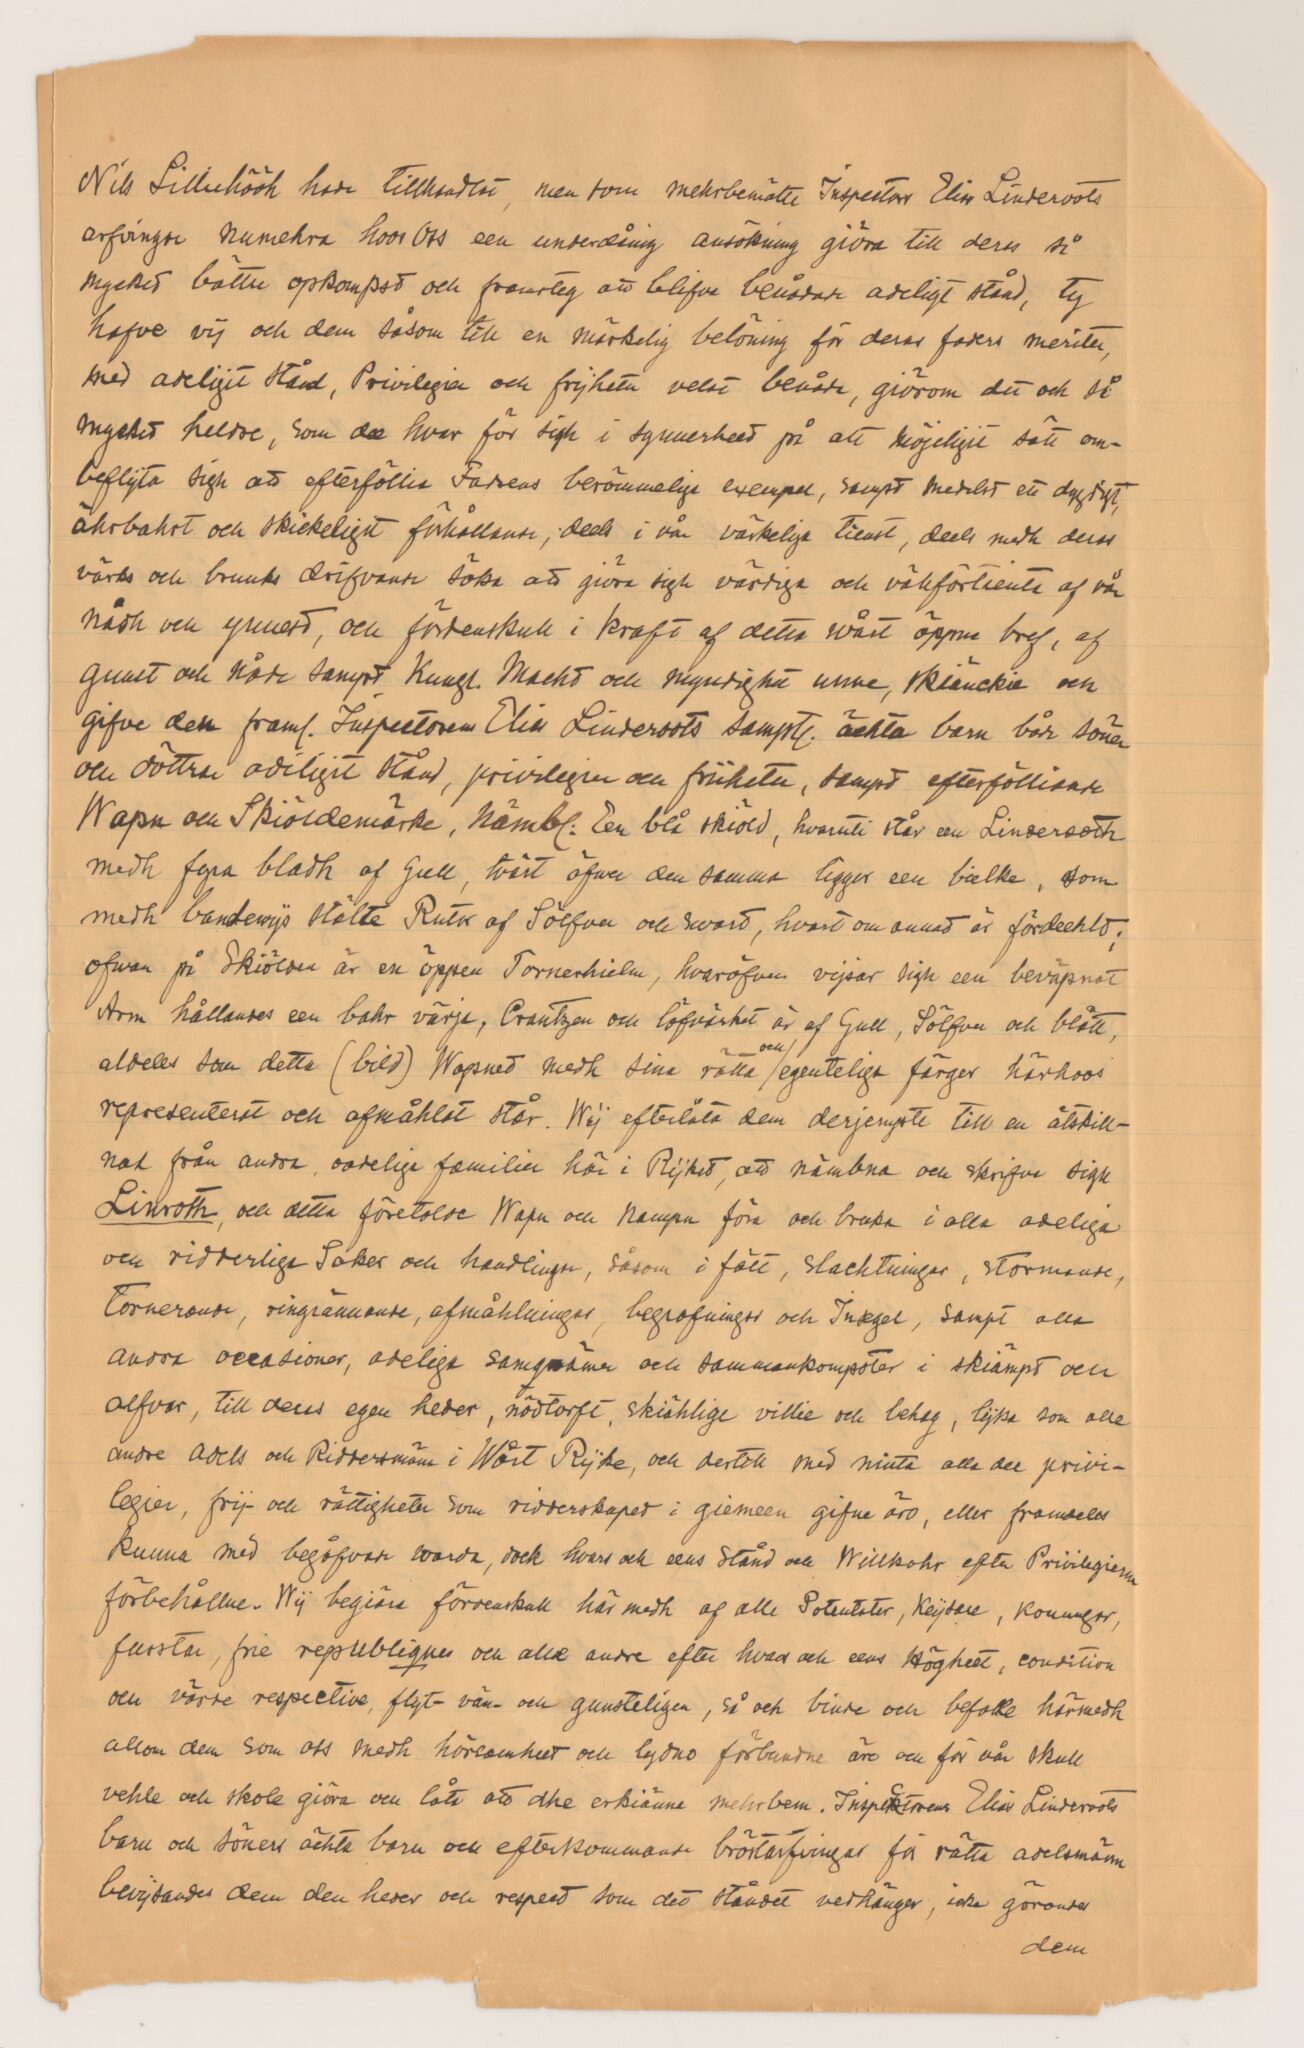 Nils Lilliehöök hade tillhandlat, men som mehrbemälte Inspectors Elias Linderoots
arfvingar numehra hoos Oss een underdånig ansökning giöra till deras så
mycket bättre opkompst och framsteg att blifva benådade adeligt stånd, ty
hafve vij och dem såsom till en märkelig belöning för deras faders meriter,
med adeligit stånd, Privilegier och frijheter velat benåde, giörom det och så
mycket heldre, som dee hvar för sigh i synnerheet på alt möjeligit sätt om-
beflijta sigh att efterföllia Fadrens berömmelige exempel, sampt medelst ett dygdigt,
ährbahrt och skickeligit förhållande, deels i vår värkeliga tienst, deels medh deras
värks och bruuks drifvande söka att giöra sigh värdiga och välförtienta af vår
nådh och ynnest, och fördenskull i kraft af detta wårt öppne bref, af
gunst och nåde sampt Kungl. Macht och myndighet unne, skiänckie och
gifve den framl. Inspectorens Elias Linderoots sampl. ächta barn både söner
och döttrar adeligit stånd, privilegier och friiheter, sampt efterföliande
Wapn och Skiöldemärke, Nämbl. Een blå skiöld, hvaruti står een Linderoth
medh fyra bladh af Gull, tvärt öfwer den samma ligger een bielke, som
medh bandewijs stälte Rutor af Sölfver och swart, hvart om annat är fördeehlt;
ofwan på Skiölden är en öppen Tornerhielm, hvaröfver vijsar sigh een beväpnat
Arm hållandes een bahr värja, Crantzen och löfvärket är af Gull, Sölfver och blått,
aldeles som detta (bild) Wapned medh sina rätta och/ egenteliga färger härhoos
representerat och afmåhlat står. Wij efterlåta dem derjempte till en åtskill-
nad från andra adeliga familier här i Rijket, att nämbna och skrifva sigh
Linroth, och detta företalde Wapn och Nampn föra och bruka i alla adeliga
och ridderliga Saker och handlingar, såsom i fält, slachtningar, stormande,
Tornerande, ringrännande, afmåhlningar, begrafningar och Insegel, sampt alla
andra occasioner, adeliga samqwämer och sammankompster i skiämpt och
alfvar, till deras egen heder, nödtorft, skiählige villie och behag, lijka som alle
andre adels och Riddersmän i Wårt Rijke, och dertill med niuta alla dee privi-
legier, frij- och rättigheter som ridderskapet i giemeen gifne äro, eller framdeles
kunna med begåfvade warda, dock hvars och eens Stånd och Willkohr efter Privilegierne
förbehållne. Wij begiära fördenskull här medh af alle Potentater, Keijsare, Konungar,
furstar, frie republiques och alle andre efter hvars och eens Högheet, condition
och värde respective, flyt- vän- och gunsteligen, så och biude och befalle härmedh
allom dem som oss medh hörsamheet och lydno förbundne äre och för vår skull
vehle och skole giöra och låta att dhe erkiänna mehrbem. Inspektorens Elias Linderoots
barn och söners ächta barn och efterkommande bröstarfvingar för rätta adelsmänn
bevijsandes dem den heder och respect som det ståndet vedhänger, icke görandes
dem